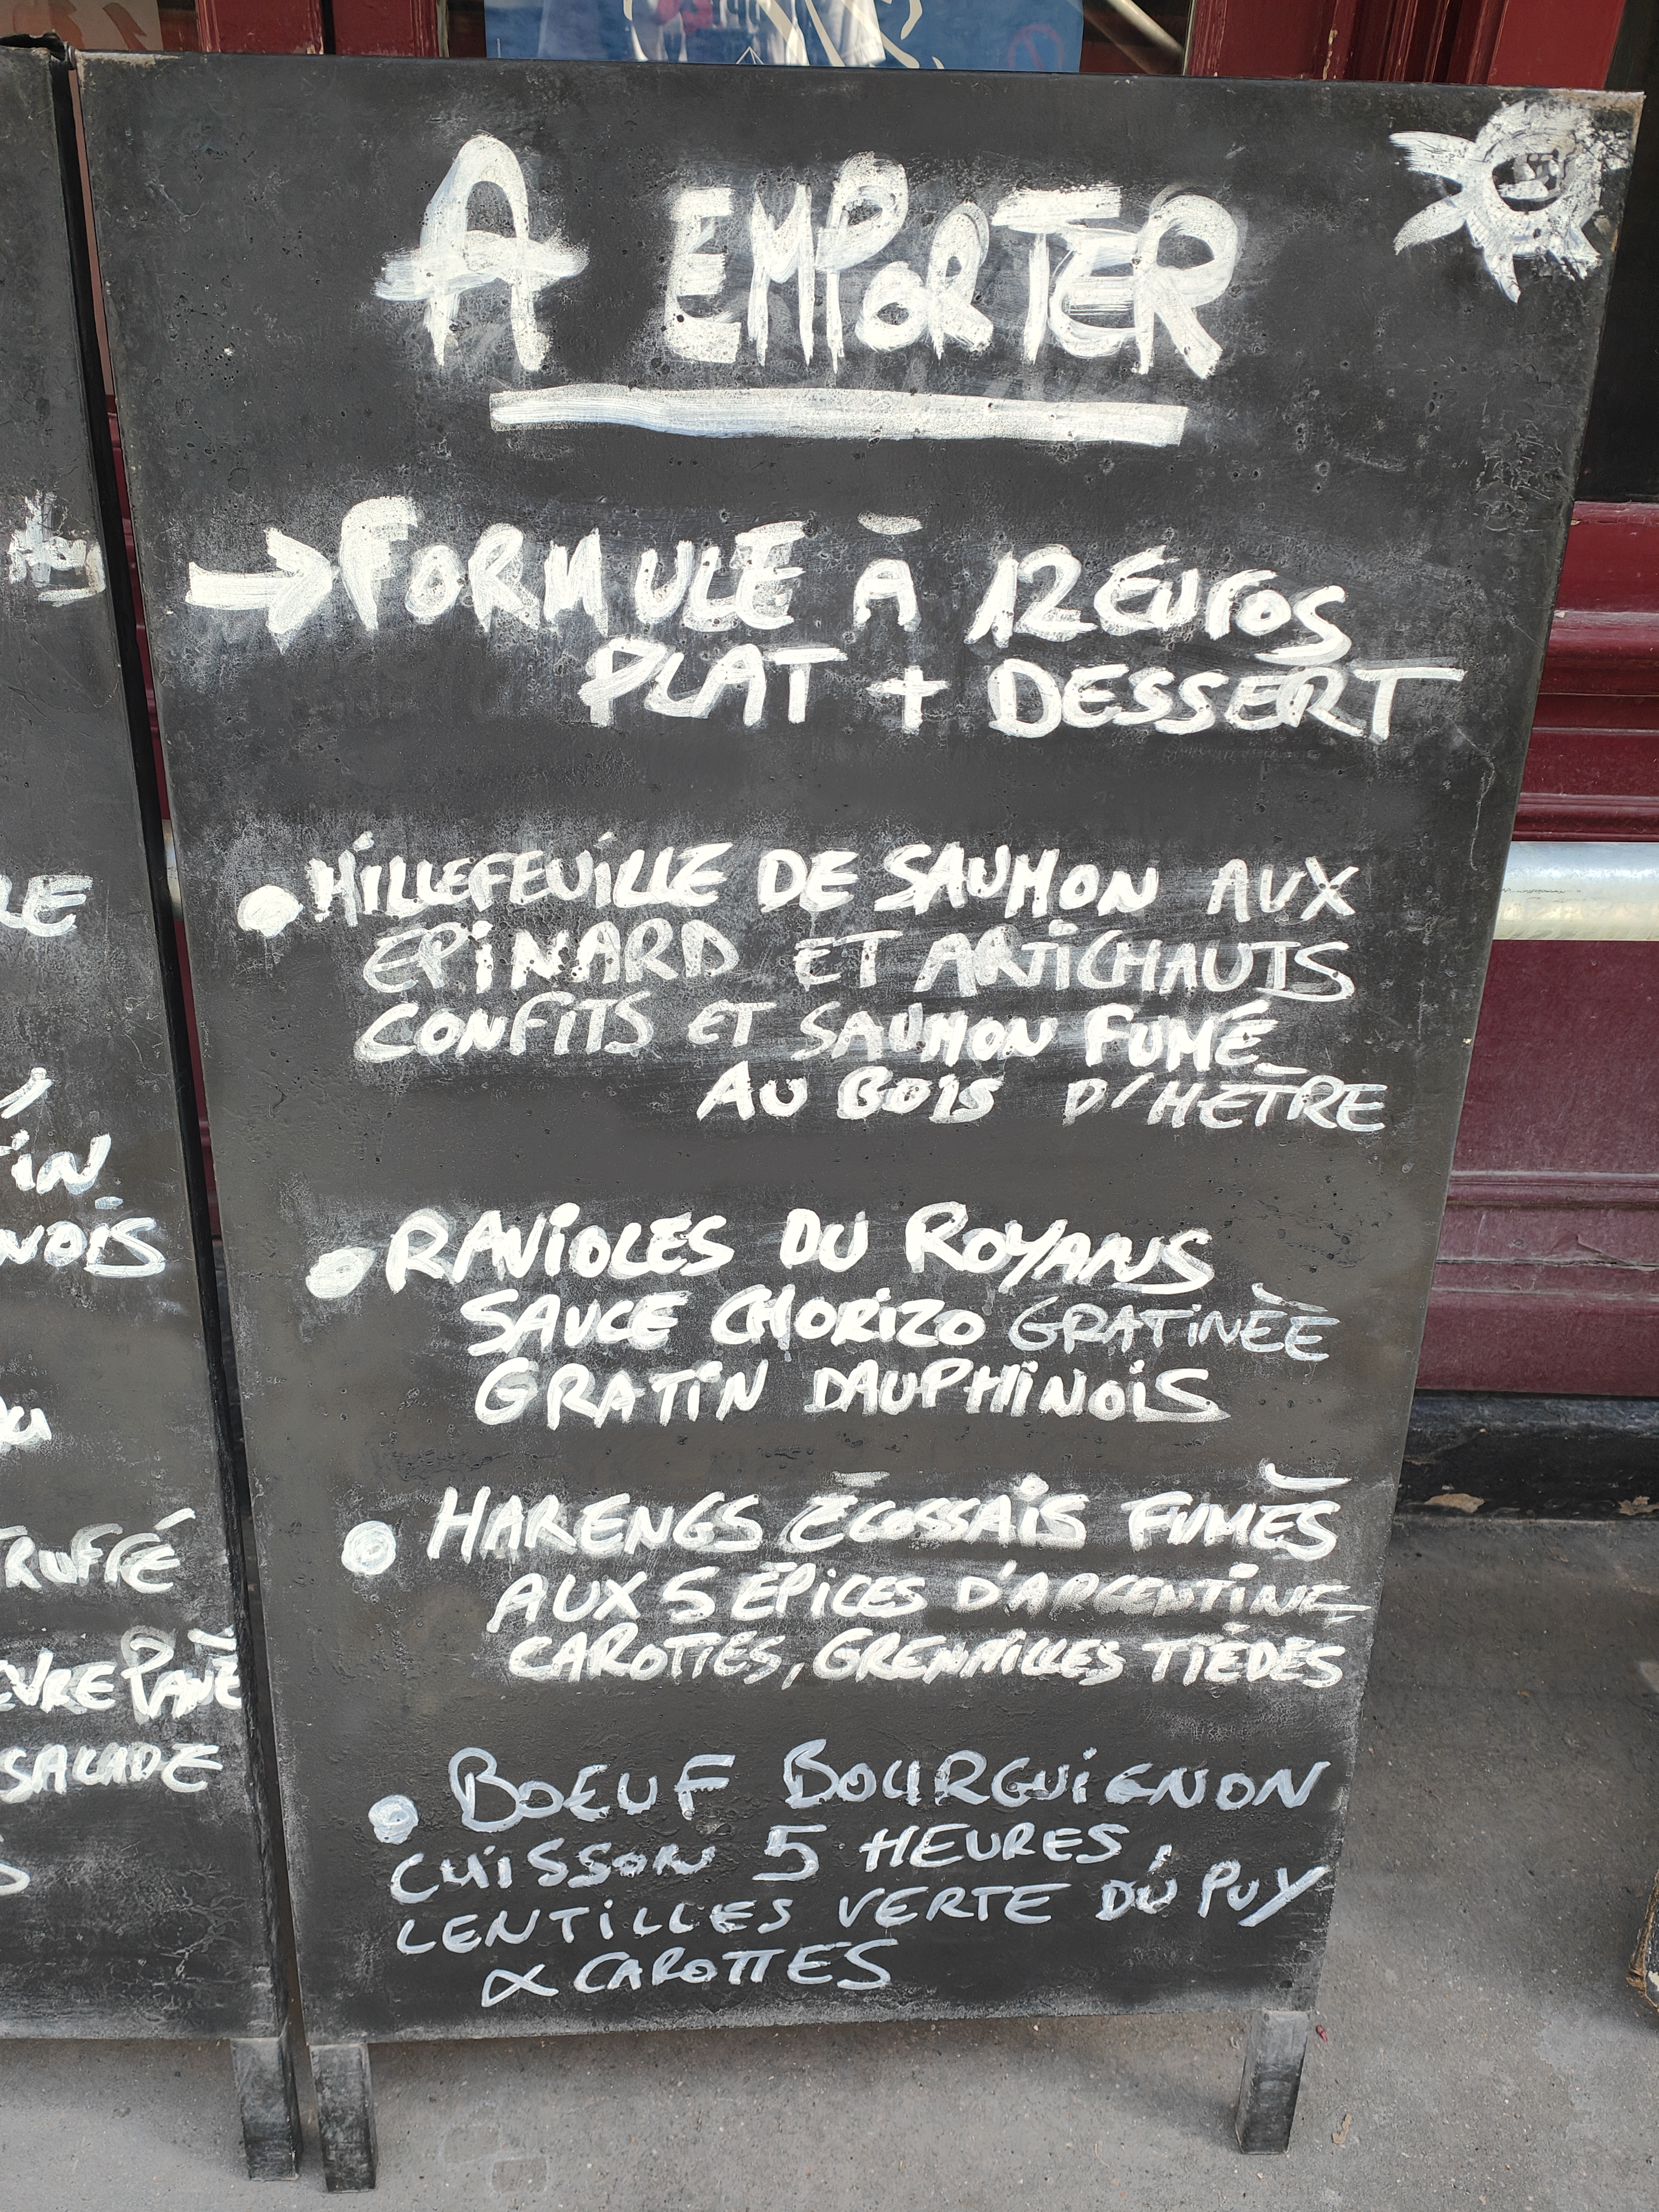 A EMPORTER
→ FORMULE À 12 EUROS
PLAT + DESSERT
• MILLEFEUILLE DE SAUMON AUX
EPINARD ET ARTICHAUTS
CONFITS ET SAUMON FUMÉ
AU BOIS D'HÊTRE
• RAVIOLES DU ROYANS
SAUCE CHORIZO GRATINÉE
GRATIN DAUPHINOIS
• HARENGS ÉCOSSAIS FUMÉS
AUX 5 ÉPICES D'ARGENTINE
CAROTTES, GRENAILLES TIÈDES
• BOEUF BOURGUIGNON
CUISSON 5 HEURES,
LENTILLES VERTE DU PUY
& CAROTTES
LE
IN
NOIS
TRUFFÉ
EVRE PANÉ
SALADE